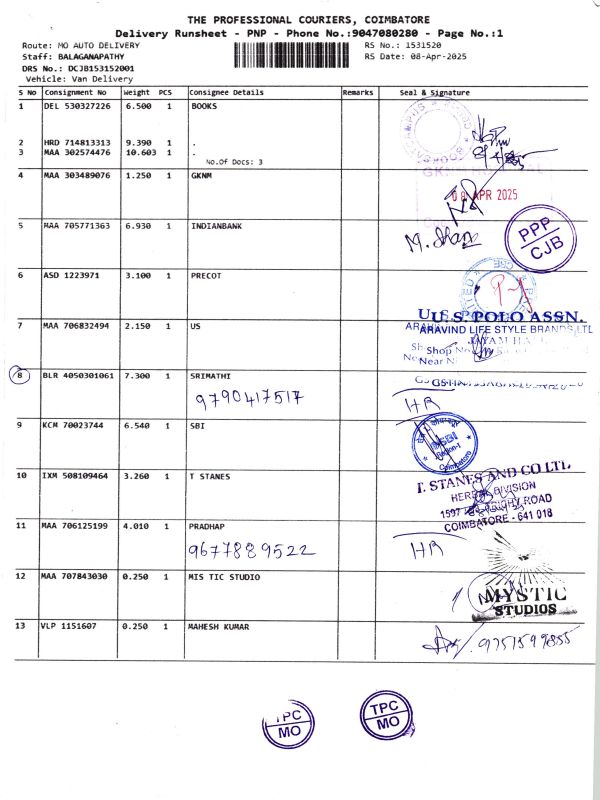 THE PROFESSIONAL COURIERS, COIMBATORE
Delivery Runsheet - PNP - Phone No.:9047080280 - Page No.:1
Route: MO AUTO DELIVERY RS No.: 1531520
Staff: BALAGANAPATHY RS Date: 08-Apr-2025
DRS No.: DCJB153152001
Vehicle: Van Delivery
S No Consignment No Weight PCS Consignee Details Remarks Seal & Signature
1 DEL 530327226 6.500 1 BOOKS
2 HRD 714813313 9.390 1 .
3 MAA 302574476 10.603 1 .
No.Of Docs: 3
4 MAA 303489076 1.250 1 GKNM
08 APR 2025
5 MAA 705771363 6.930 1 INDIANBANK
PPP
CJB
6 ASD 1223971 3.100 1 PRECOT
U.S. POLO ASSN.
7 MAA 706832494 2.150 1 US
ARAVIND LIFE STYLE BRANDS LTD
Shop No
Near
8 BLR 4050301061 7.300 1 SRIMATHI
9790417517 HR
9 KCM 70023744 6.540 1 SBI
SBI
Coimbatore
10 IXM 508109464 3.260 1 T STANES
T. STANES AND CO LTD.
HERBAL DIVISION
1597 TRICHY ROAD
COIMBATORE - 641 018
11 MAA 706125199 4.010 1 PRADHAP
9677889522 HR
12 MAA 707843030 0.250 1 MIS TIC STUDIO
MYSTIC
STUDIOS
13 VLP 1151607 0.250 1 MAHESH KUMAR
9751599855
TPC
MO
TPC
MO